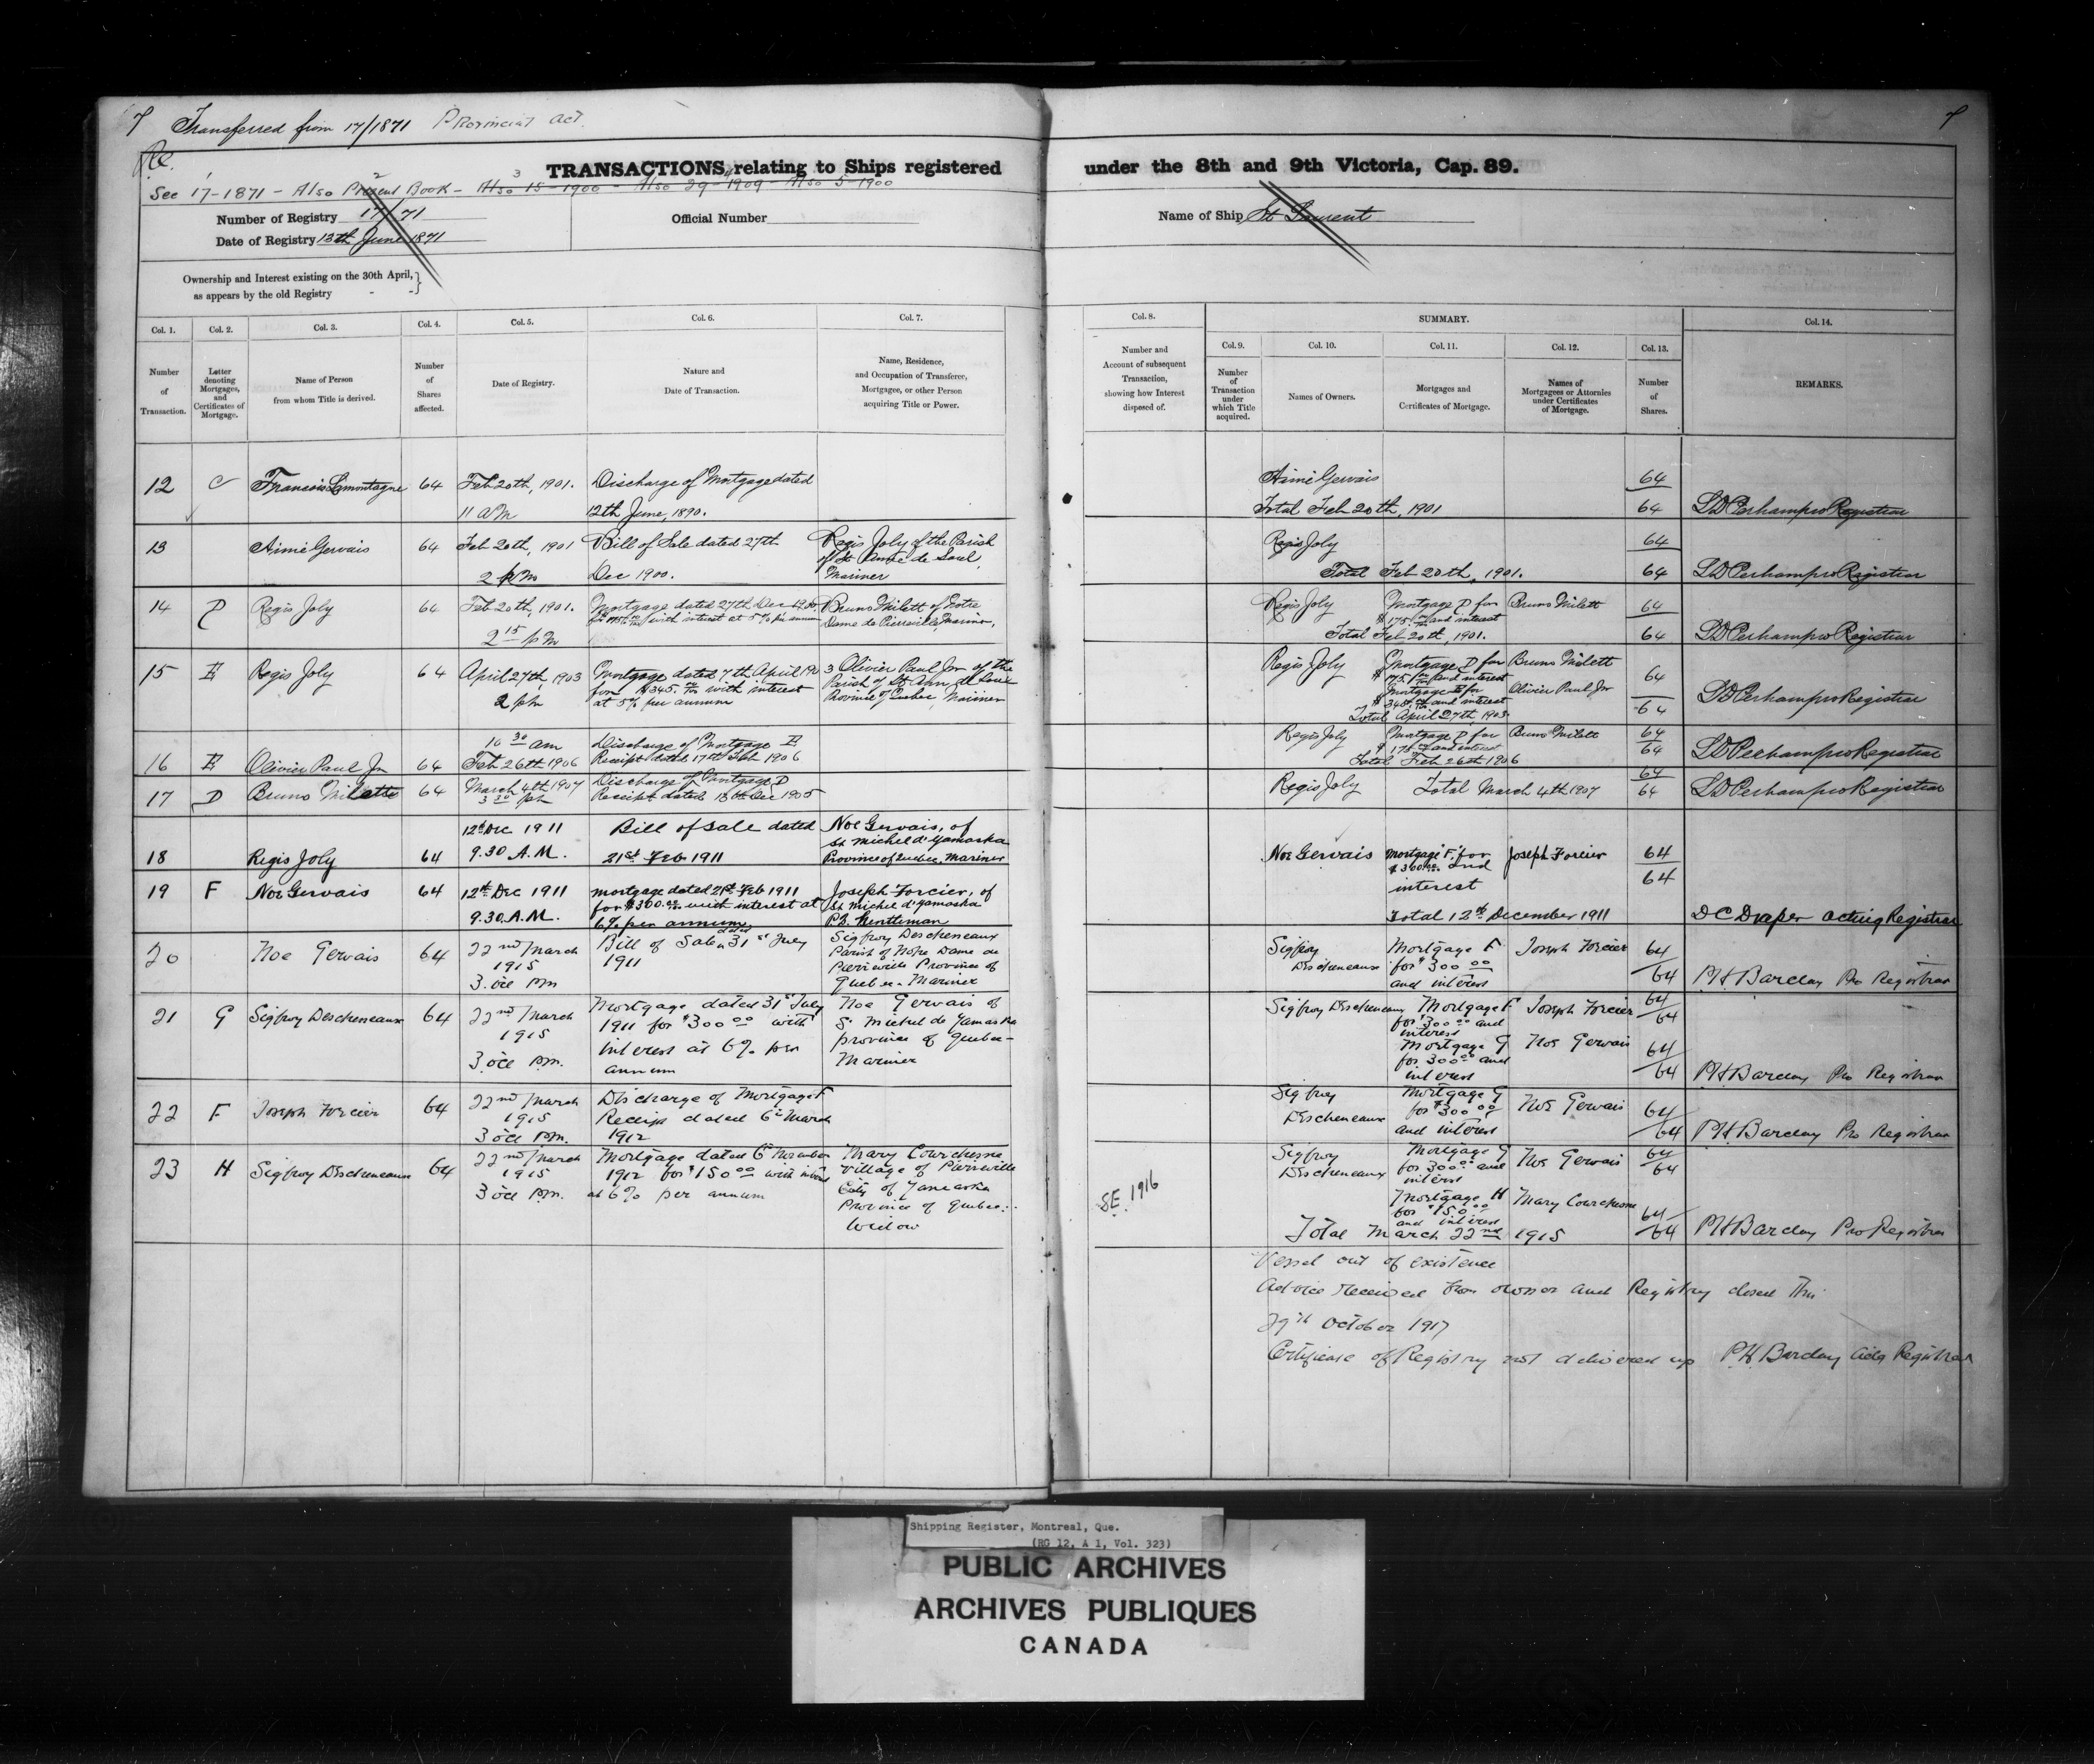 7 Transferred from 17/1871 Provincial Act.
TRANSACTIONS relating to Ships registered under the 8th and 9th Victoria, Cap. 89.
See 17-1871 - Also Present Book - Also 15-1906 - Also 29-1909 - Also 5-1900
Number of Registry 17/71
Official Number
Name of Ship St Laurent
Date of Registry 13th June 1871
Ownership and Interest existing on the 30th April,
as appears by the old Registry
Col. 1. Col. 2. Col. 3. Col. 4. Col. 5. Col. 6. Col. 7.
Number of Transaction.
Letter denoting Mortgages, and Certificates of Mortgage.
Name of Person from whom Title is derived.
Number of Shares affected.
Date of Registry.
Nature and Date of Transaction.
Name, Residence, and Occupation of Transferee, Mortgagee, or other Person acquiring Title or Power.
12 C Francois Lamontagne 64 Feb 20th, 1901. Discharge of Mortgage dated
11 AM 12th June, 1890.
13 Aimé Gervais 64 Feb 20th, 1901 Bill of Sale dated 27th Regis Joly of the Parish
of St Anne de Sorel,
2 PM Dec 1900. Mariner
14 D Regis Joly 64 Feb 20th, 1901. Mortgage dated 27th Dec 1900, Bruno Milett of Notre
for with interest at 5% per annum Dame de Pierreville, Mariner,
2 15 PM
15 E Regis Joly 64 April 27th, 1903 Mortgage dated 7th April 1903 Olivier Paul Jnr of the
for $345. with interest Parish of St Ann de Sorel
2 pm at 5% per annum Province of Quebec, Mariner
10 30 am Discharge of Mortgage E
16 E Olivier Paul Jn 64 Feb 26th 1906 Receipt dated 17th Feb 1906
17 D Bruno Milette 64 March 4th 1907 Discharge of Mortgage D
3 30 pm Receipt dated Dec 1905
12th Dec 1911 Bill of Sale dated Noe Gervais, of
St Michel d'Yamaska
18 Regis Joly 64 9.30 A.M. 21st Feb 1911 Province of Quebec, Mariner
19 F Noe Gervais 64 12th Dec 1911 mortgage dated 21st Feb 1911 Joseph Forcier, of
for $300.00 with interest at St Michel d'Yamaska
9.30. A.M. 6% per annum P.Q. Gentleman
20 Noe Gervais 64 22nd March Bill of Sale dated 31st July Sigfroy Descheneaux
1915 1911 Parish of Notre Dame de
Pierreville Province of
3. ocl PM Quebec - Mariner
21 G Sigfroy Descheneaux 64 22nd March Mortgage dated 31st July Noe Gervais of
1915 1911 for $300 00 with St Michel de Yamaska
interest at 6% per province of Quebec -
3 ocl P.M. annum Mariner
22 F Joseph Forcier 64 22nd March Discharge of Mortgage F
1915 Receipt dated 6th March
3 ocl P.M. 1912
23 H Sigfroy Descheneaux 64 22nd March Mortgage dated 6th November Mary Courchesne
1915 1912 for $150 00 with interest Village of Pierreville
3 ocl P.M. at 6% per annum City of Yamaska
Province of Quebec.
Widow
7
Col. 8. SUMMARY. Col. 14.
Col. 9. Col. 10. Col. 11. Col. 12. Col. 13.
Number and Account of subsequent Transaction, showing how Interest disposed of.
Number of Transaction under which Title acquired.
Names of Owners.
Mortgages and Certificates of Mortgage.
Names of Mortgagees or Attornies under Certificates of Mortgage.
Number of Shares.
REMARKS.
Aimé Gervais 64
Total Feb 20th, 1901 64 Perham pro Registrar
Regis Joly 64
Total Feb 20th, 1901. 64 Perham pro Registrar
Regis Joly Mortgage D for Bruno Milett 64
$175 and interest
Total Feb 20th, 1901. 64 Perham pro Registrar
Regis Joly Mortgage D for Bruno Milett
$175 and interest 64
Mortgage E for Olivier Paul Jnr
$345 and interest
Total April 27th, 1903. 64 Perham pro Registrar
Regis Joly Mortgage D for Bruno Milett 64
$175 and interest 64
Total Feb 26th 1906 Perham pro Registrar
64
Regis Joly Total March 4th 1907 64 Perham pro Registrar
Noe Gervais Mortgage "F" for Joseph Forcier 64
$300.00 and 64
interest
Total 12th December 1911 D C Draper acting Registrar
Sigfroy Mortgage F Joseph Forcier 64
Descheneaux for $300 00 64
and interest P H Barclay Pro Registrar
Sigfroy Descheneaux Mortgage F Joseph Forcier 64
for $300 00 and 64
interest
Mortgage G Noe Gervais 64
for 300 00 and
interest 64 P H Barclay Pro Registrar
Sigfroy Mortgage G
Descheneaux for $300 00 Noe Gervais 64
and interest 64 P H Barclay Pro Registrar
Sigfroy Mortgage G 64
Descheneaux for 300 00 and Noe Gervais 64
interest
SE. 1916
Mortgage H Mary Courchesne
for $150 00 64
and interest
Total March 22nd 1915 64 P H Barclay Pro Registrar
Vessel out of existence
Advice received from owner and Registry closed this
29th October 1917
Certificate of Registry not delivered up P. H. Barclay Registrar
Shipping Register, Montreal, Que.
(RG 12, A 1, Vol. 323)
PUBLIC ARCHIVES
ARCHIVES PUBLIQUES
CANADA